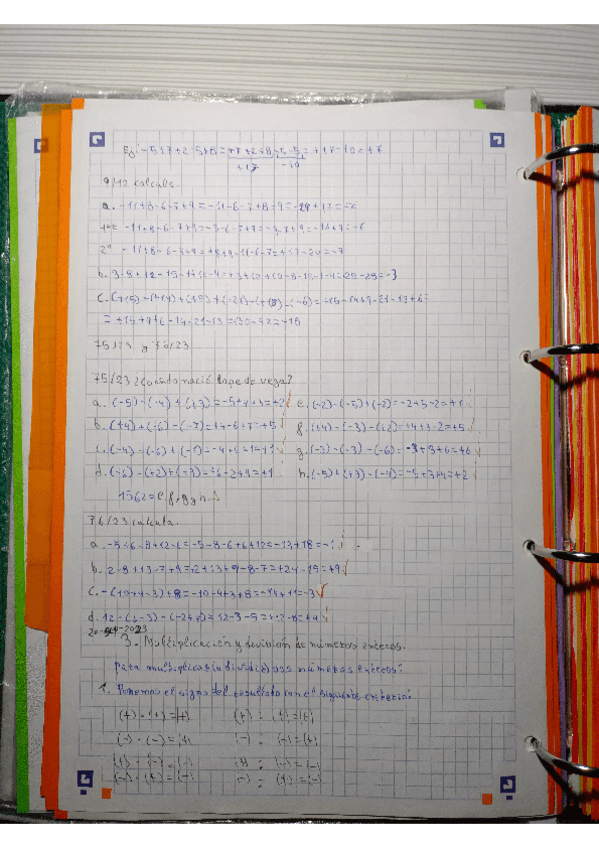 Ej: -5+7+2-5+8=+7+2+8-5-5=+17-10=+7
+17 -10
9/12 Calcula.
a. -11+8-6-7+9=-11-6-7+8+9=-24+17=
-11+8-6-7+9=-3-6-7+9=
2º -11+8-6-7+9=+8+9-11-6-7=+17-24=-7
b. 3-8+12-15+10-1-4=+3+12+10-8-15-1-4=25-28=-3
75/23 y 76/23
75/23 ¿Cuándo nació Lope de Vega?
a. (-5)-(-4)+(+3)=-5+4+3=+2 e. (-2)-(-5)+(-2)=-2+5-2=+1
b. (+4)+(-6)-(-7)=+4-6+7=+5 f. (+4)-(-3)-(+2)=+4+3-2=+5
c. (-4)-(-6)+(-1)=-4+6-1=+1 g. (-3)-(-3)-(-6)=-3+3+6=+6
d. (-6)-(+2)+(+9)=-6-2+9=+1 h. (-5)+(+3)-(-4)=-5+3+4=+2
1562=e, f, g y h.
76/23 Calcula.
a. -5+6-8+12-6=
b. 2-8+13-7+9=2+13+9-8-7=+24-15=+9
c. -(10+4-3)+8=-10-4+3+8=-14+11=-3
d. 12-
20-sep-2023
3. Multiplicación y división de números enteros.
Para multiplicar o dividir dos números enteros:
1. Ponemos el signo del resultado con el siguiente criterio:
(+) · (+)=(+) (+) : (+)=(+)
(-) · (-)=(+) (-) : (-)=(+)
(+) · (-)=(-) (+) : (-)=(-)
(-) · (+)=(-) (-) : (+)=(-)